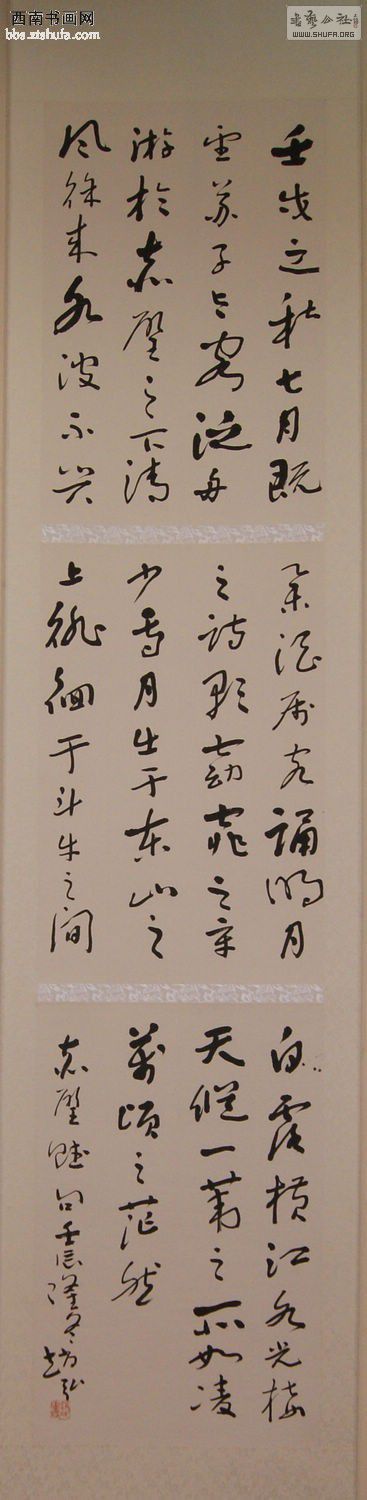 西南书画网
bbs.ztshufa.com
书艺公社
WWW.SHUFA.ORG
壬戌之秋七月既
望苏子与客泛舟
游於赤壁之下清
风徐来水波不兴
举酒属客诵明月
之诗歌窈窕之章
少焉月出于东山之
上徘徊于斗牛之间
白露横江水光接
天纵一苇之所如凌
万顷之茫然
赤壁赋句壬辰